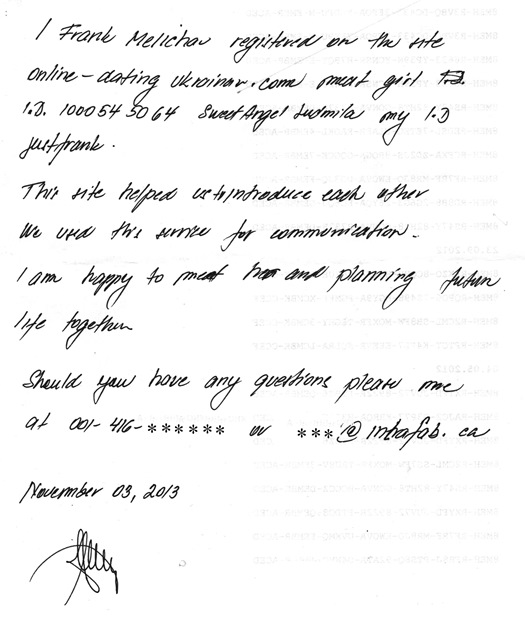 I Frank Melichar registered on the site
online-dating ukrainian.com meet girl
I.D. 1000545064 SweetAngel Ludmila my I.D
justfrank.
This site helped us to introduce each other
We used this service for communication.
I am happy to meet her and planning futur
life together
Should you have any questions please me
at 001-416-****** or ***@intrafab.ca
November 03, 2013